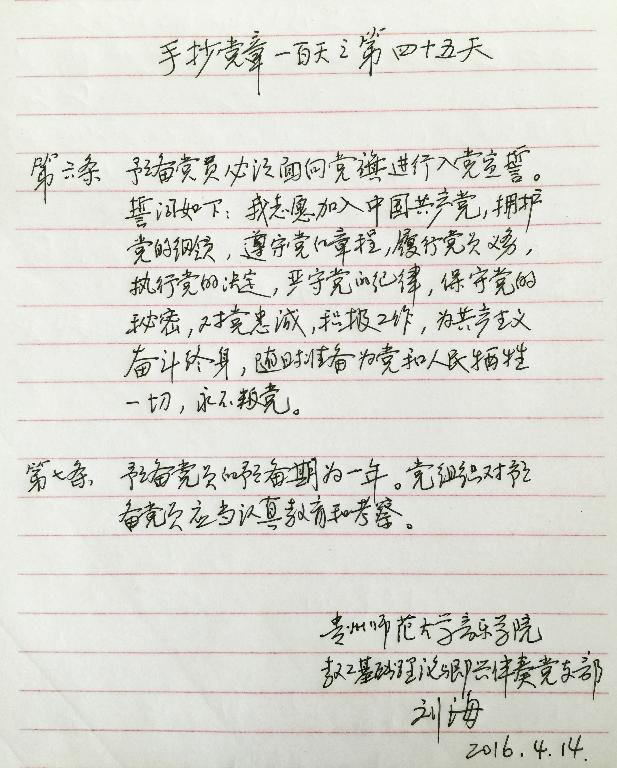 手抄党章一百天之第四十五天
第六条 预备党员必须面向党旗进行入党宣誓。
誓词如下：我志愿加入中国共产党，拥护
党的纲领，遵守党的章程，履行党员义务，
执行党的决定，严守党的纪律，保守党的
秘密，对党忠诚，积极工作，为共产主义
奋斗终身，随时准备为党和人民牺牲
一切，永不叛党。
第七条 预备党员的预备期为一年。党组织对预
备党员应当认真教育和考察。
贵州师范大学音乐学院
教工基础理论与即兴伴奏党支部
刘海
2016.4.14.